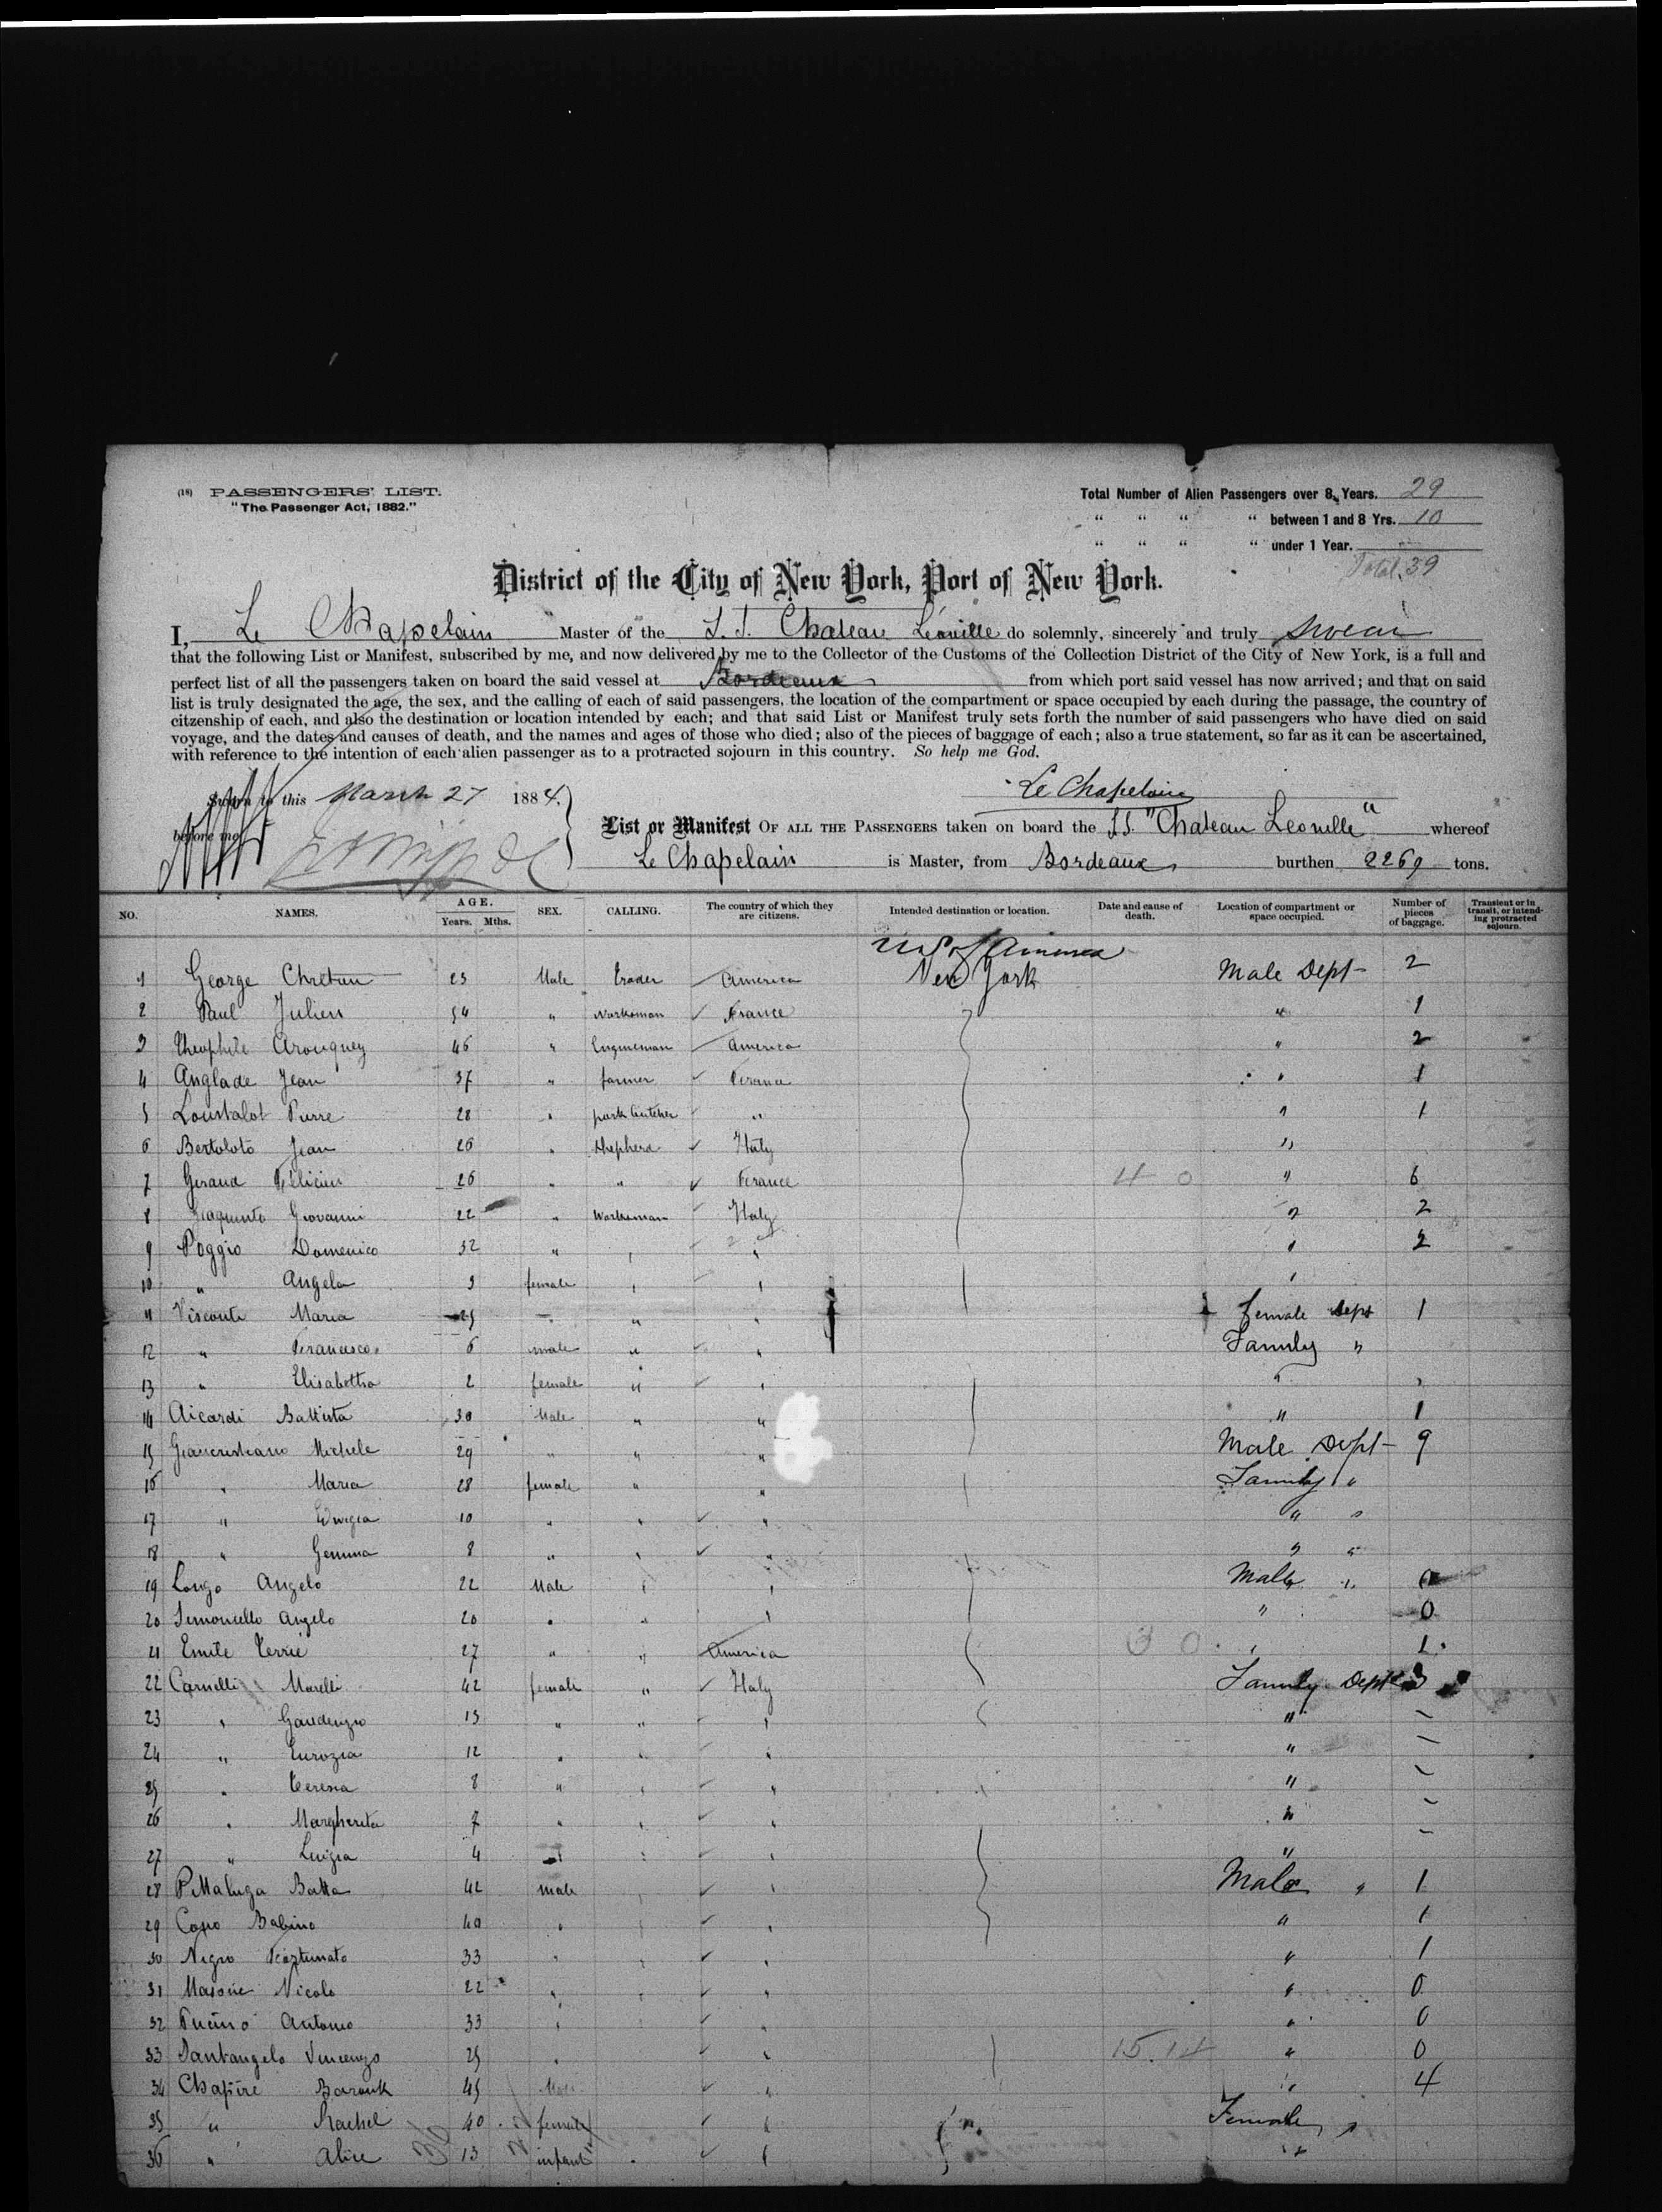 (18) PASSENGERS' LIST.
"The Passenger Act, 1882."
Total Number of Alien Passengers over 8 Years. 29
" " " " between 1 and 8 Yrs. 10
" " " " under 1 Year.
Total 39
District of the City of New York, Port of New York.
I, Le Chapelain Master of the S.S. Chateau Léoville do solemnly, sincerely and truly swear
that the following List or Manifest, subscribed by me, and now delivered by me to the Collector of the Customs of the Collection District of the City of New York, is a full and
perfect list of all the passengers taken on board the said vessel at Bordeaux from which port said vessel has now arrived; and that on said
list is truly designated the age, the sex, and the calling of each of said passengers, the location of the compartment or space occupied by each during the passage, the country of
citzenship of each, and also the destination or location intended by each; and that said List or Manifest truly sets forth the number of said passengers who have died on said
voyage, and the dates and causes of death, and the names and ages of those who died; also of the pieces of baggage of each; also a true statement, so far as it can be ascertained,
with reference to the intention of each alien passenger as to a protracted sojourn in this country. So help me God.
Sworn to this March 27 1884.
Le Chapelain
before me
List or Manifest OF ALL THE PASSENGERS taken on board the S.S. "Chateau Leoville" whereof
Le Chapelain is Master, from Bordeaux burthen 2269 tons.
NO. NAMES. AGE. Years. Mths. SEX. CALLING. The country of which they are citizens. Intended destination or location. Date and cause of death. Location of compartment or space occupied. Number of pieces of baggage. Transient or in transit, or intending protracted sojourn.
U S of America
1 George Chretien 23 Male trader America New York Male Dept 2
2 Paul Julien 54 " workman France " 1
3 Theophile Arouquey 46 " Engineman America " 2
4 Anglade Jean 37 " farmer France " 1
5 Loustalot Pierre 28 " pork butcher " " 1
6 Bertoloto Jean 26 " Shepherd Italy "
7 Geraud Félicien 26 " " France 4 0 " 6
8 Giaquinto Giovanni 22 " Workman Italy " 2
9 Poggio Domenico 32 " " " " 2
10 " Angela 3 female " " "
11 Visconti Maria 25 " " " Female Dept 1
12 " Francesco 6 male " " Family "
13 " Elisabettha 2 female " " " "
14 Aicardi Battista 30 Male " " " 1
15 Giancristiano Michele 29 " " " Male Dept 9
16 " Maria 28 female " " Family "
17 " Edwigia 10 " " " " "
18 " Gemma 8 " " " " "
19 Longo Angelo 22 Male " " Male "
20 Simoniello Angelo 20 " " " " 0
21 Emile Terrié 27 " " America 3 0 " 1
22 Carnelli Morelli 42 female " Italy Family Dept 3
23 " Gaudenzio 13 " " " " -
24 " Eurozia 12 " " " " -
25 " Teresia 8 " " " " -
26 " Margherita 7 " " " " -
27 " Luigia 4 " " " " -
28 Pittaluga Batta 42 male " " Male " 1
29 Capo Babino 40 " " " " 1
30 Negro Fortunato 33 " " " " 1
31 Masone Nicolo 22 " " " " 0
32 Antonio 33 " " " " 0
33 Santangelo Vincenzo 25 " " " 15.14 " 0
34 Chapire Barouk 45 Male " " 4
35 " Rachel 40 female " Female "
36 " Alice 13 infant " "